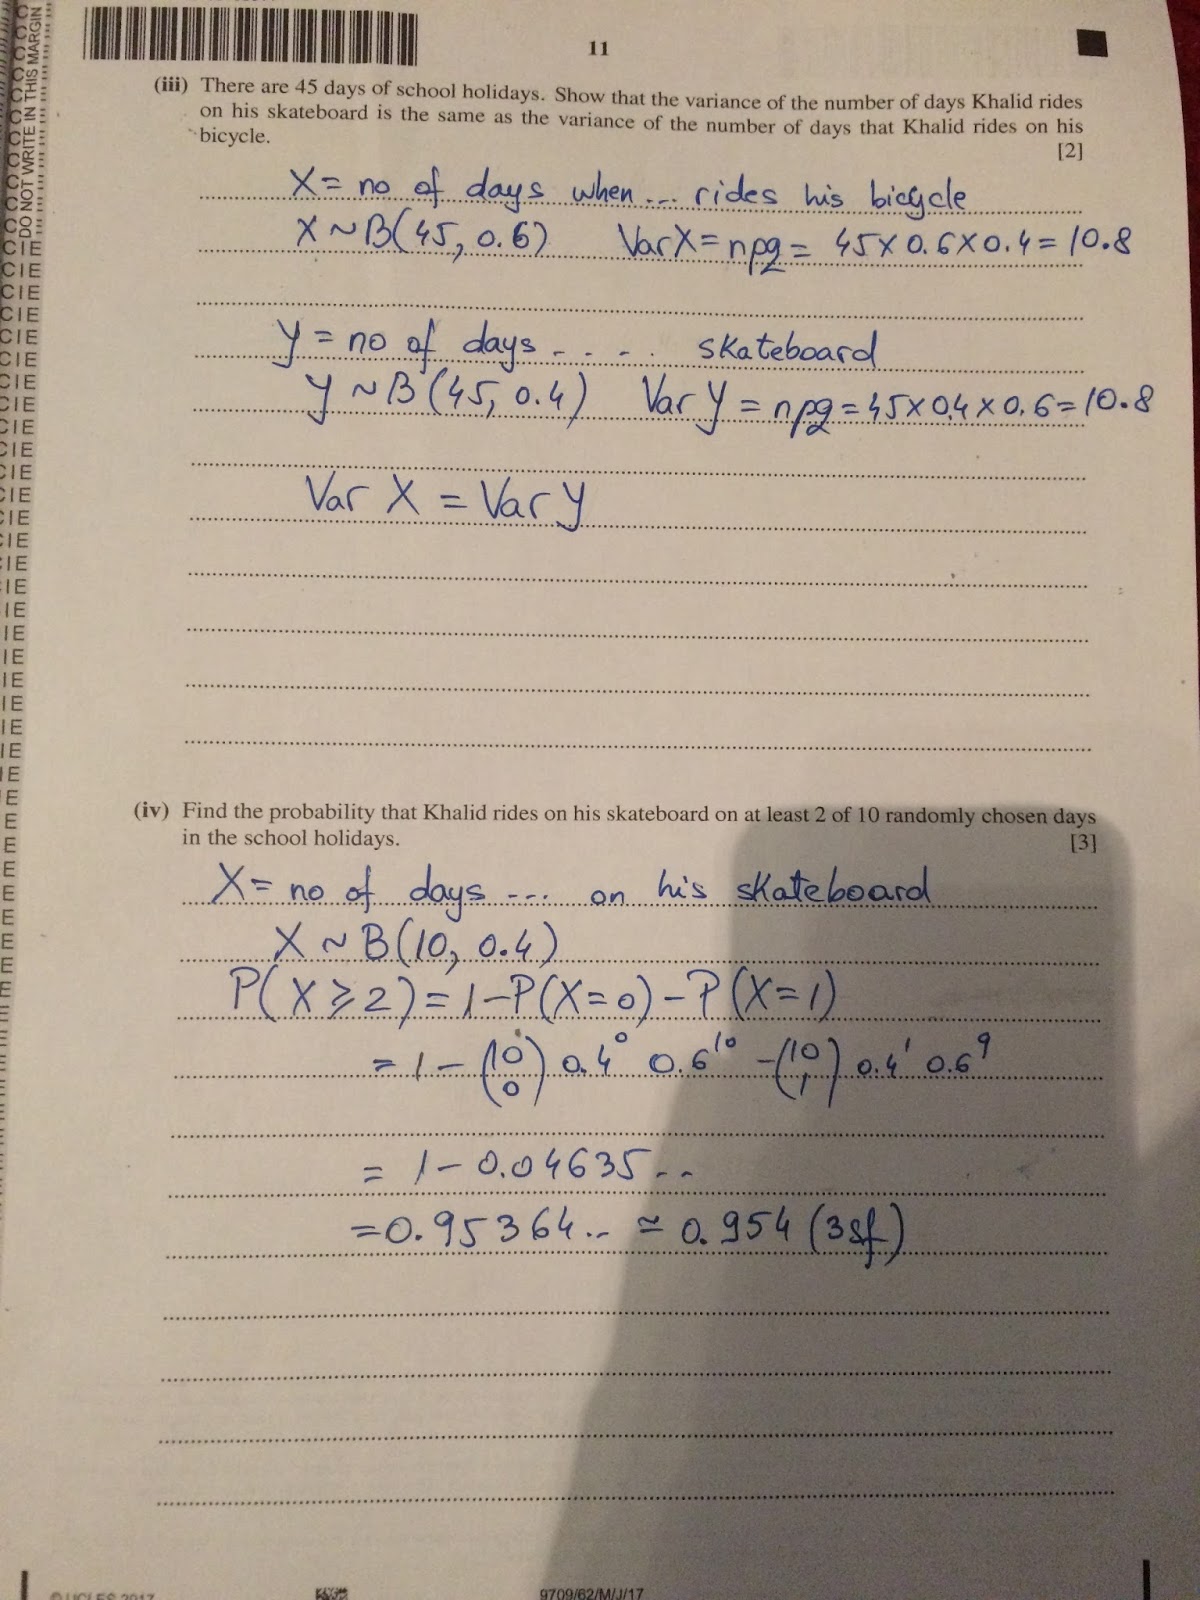 11
DO NOT WRITE IN THIS MARGIN
(iii) There are 45 days of school holidays. Show that the variance of the number of days Khalid rides
on his skateboard is the same as the variance of the number of days that Khalid rides on his
bicycle. [2]
X = no of days when ... rides his bicycle
X ~ B(45, 0.6) Var X = npq = 45 × 0.6 × 0.4 = 10.8
Y = no of days - . . - . . skateboard
Y ~ B(45, 0.4) Var Y = npq = 45 × 0.4 × 0.6 = 10.8
Var X = Var Y
(iv) Find the probability that Khalid rides on his skateboard on at least 2 of 10 randomly chosen days
in the school holidays. [3]
X = no of days ... on his skateboard
X ~ B(10, 0.4)
P(X ⩾ 2) = 1 − P(X = 0) − P(X = 1)
= 1 − (10 0) 0.4⁰ 0.6¹⁰ − (10 1) 0.4¹ 0.6⁹
= 1 − 0.04635..
= 0.95364.. ≃ 0.954 (3sf)
© UCLES 2017 9709/62/M/J/17